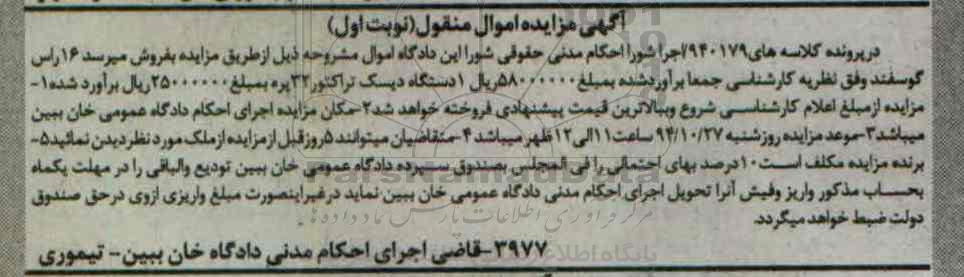 آگهی مزایده اموال منقول(نوبت اول)
درپرونده کلاسه های۹۴۰۱۷۹/اجرا شورا احکام مدنی حقوقی شورا این دادگاه اموال مشروحه ذیل ازطریق مزایده بفروش میرسد ۱۶راس
گوسفند وفق نظریه کارشناسی جمعا برآوردشده بمبلغ۵۸۰۰۰۰۰۰ریال ۱دستگاه دیسک تراکتور۳۲پره بمبلغ۲۵۰۰۰۰۰۰ریال برآورد شده۱-
مزایده ازمبلغ اعلام کارشناسی شروع وببالاترین قیمت پیشنهادی فروخته خواهد شد۲-مکان مزایده اجرای احکام دادگاه عمومی خان ببین
میباشد۳-موعد مزایده روزشنبه ۹۴/۱۰/۲۷ ساعت۱۱الی۱۲ظهر میباشد ۴-متقاضیان میتوانند۵روزقبل ازمزایده ازملک مورد نظردیدن نمائید۵-
برنده مزایده مکلف است۱۰درصد بهای احتمالی را فی المجلس بصندوق سپرده دادگاه عمومی خان ببین تودیع والباقی را در مهلت یکماه
بحساب مذکور واریز وفیش آنرا تحویل اجرای احکام مدنی دادگاه عمومی خان ببین نماید درغیراینصورت مبلغ واریزی ازوی درحق صندوق
دولت ضبط خواهد میگردد.
۳۹۷۷-قاضی اجرای احکام مدنی دادگاه خان ببین- تیموری